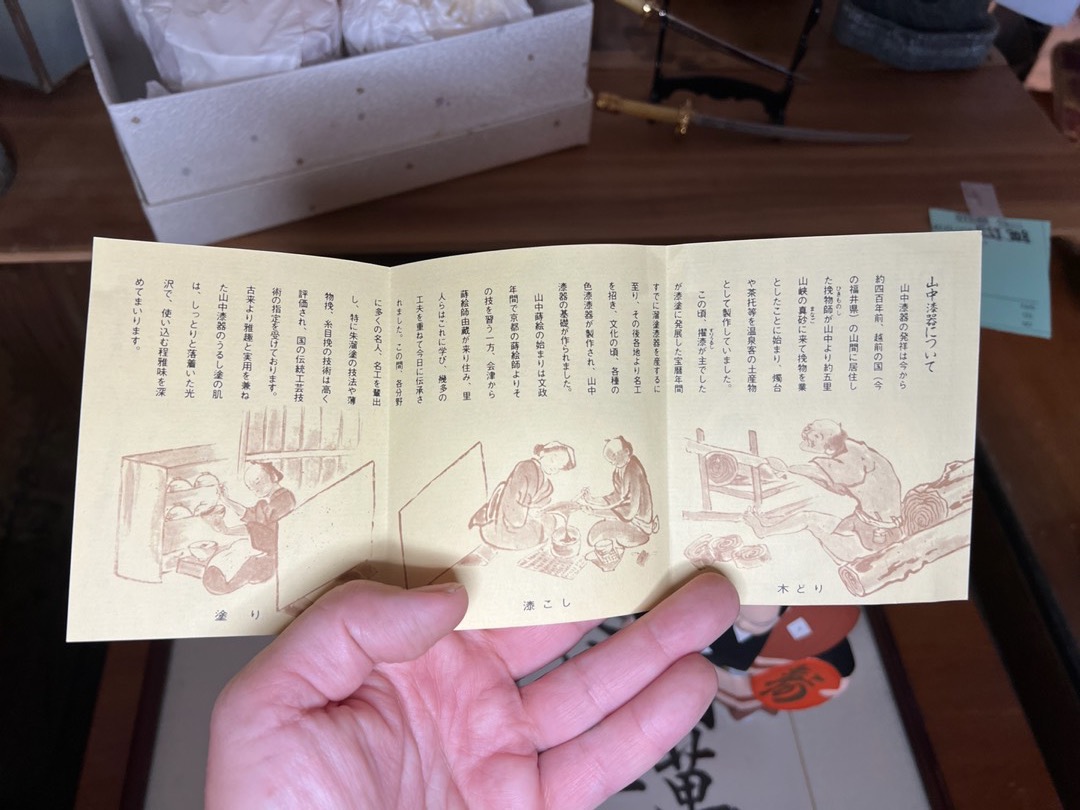 山中漆器について
山中漆器の発祥は今から
約四百年前、越前の国(今
の福井県)の山間に居住し
た挽物師が山中より約五里
ひきものし
山峡の真砂に来て挽物を業
まなご
としたことに始まり、燭台
や茶托等を温泉客の土産物
として製作していました。
この頃、擢漆が主でした
すりうるし
が漆塗に発展した宝暦年間
すでに溜塗漆器を産するに
至り、その後各地より名工
を招き、文化の頃、各種の
色漆漆器が製作され、山中
漆器の基礎が作られました。
山中蒔絵の始まりは文政
年間で京都の蒔絵師よりそ
の技を習う一方、会津から
蒔絵師由蔵が来り住み、里
人らはこれに学び、幾多の
工夫を重ねて今日に伝承さ
れました。この間、各分野
に多くの名人、名工を輩出
し、特に朱溜塗の技法や薄
物挽、糸目挽の技術は高く
評価され、国の伝統工芸技
術の指定を受けております。
古来より雅趣と実用を兼ね
た山中漆器のうるし塗の肌
は、しっとりと落着いた光
沢で、使い込む程雅味を深
めてまいります。
木どり
漆こし
塗り
寿